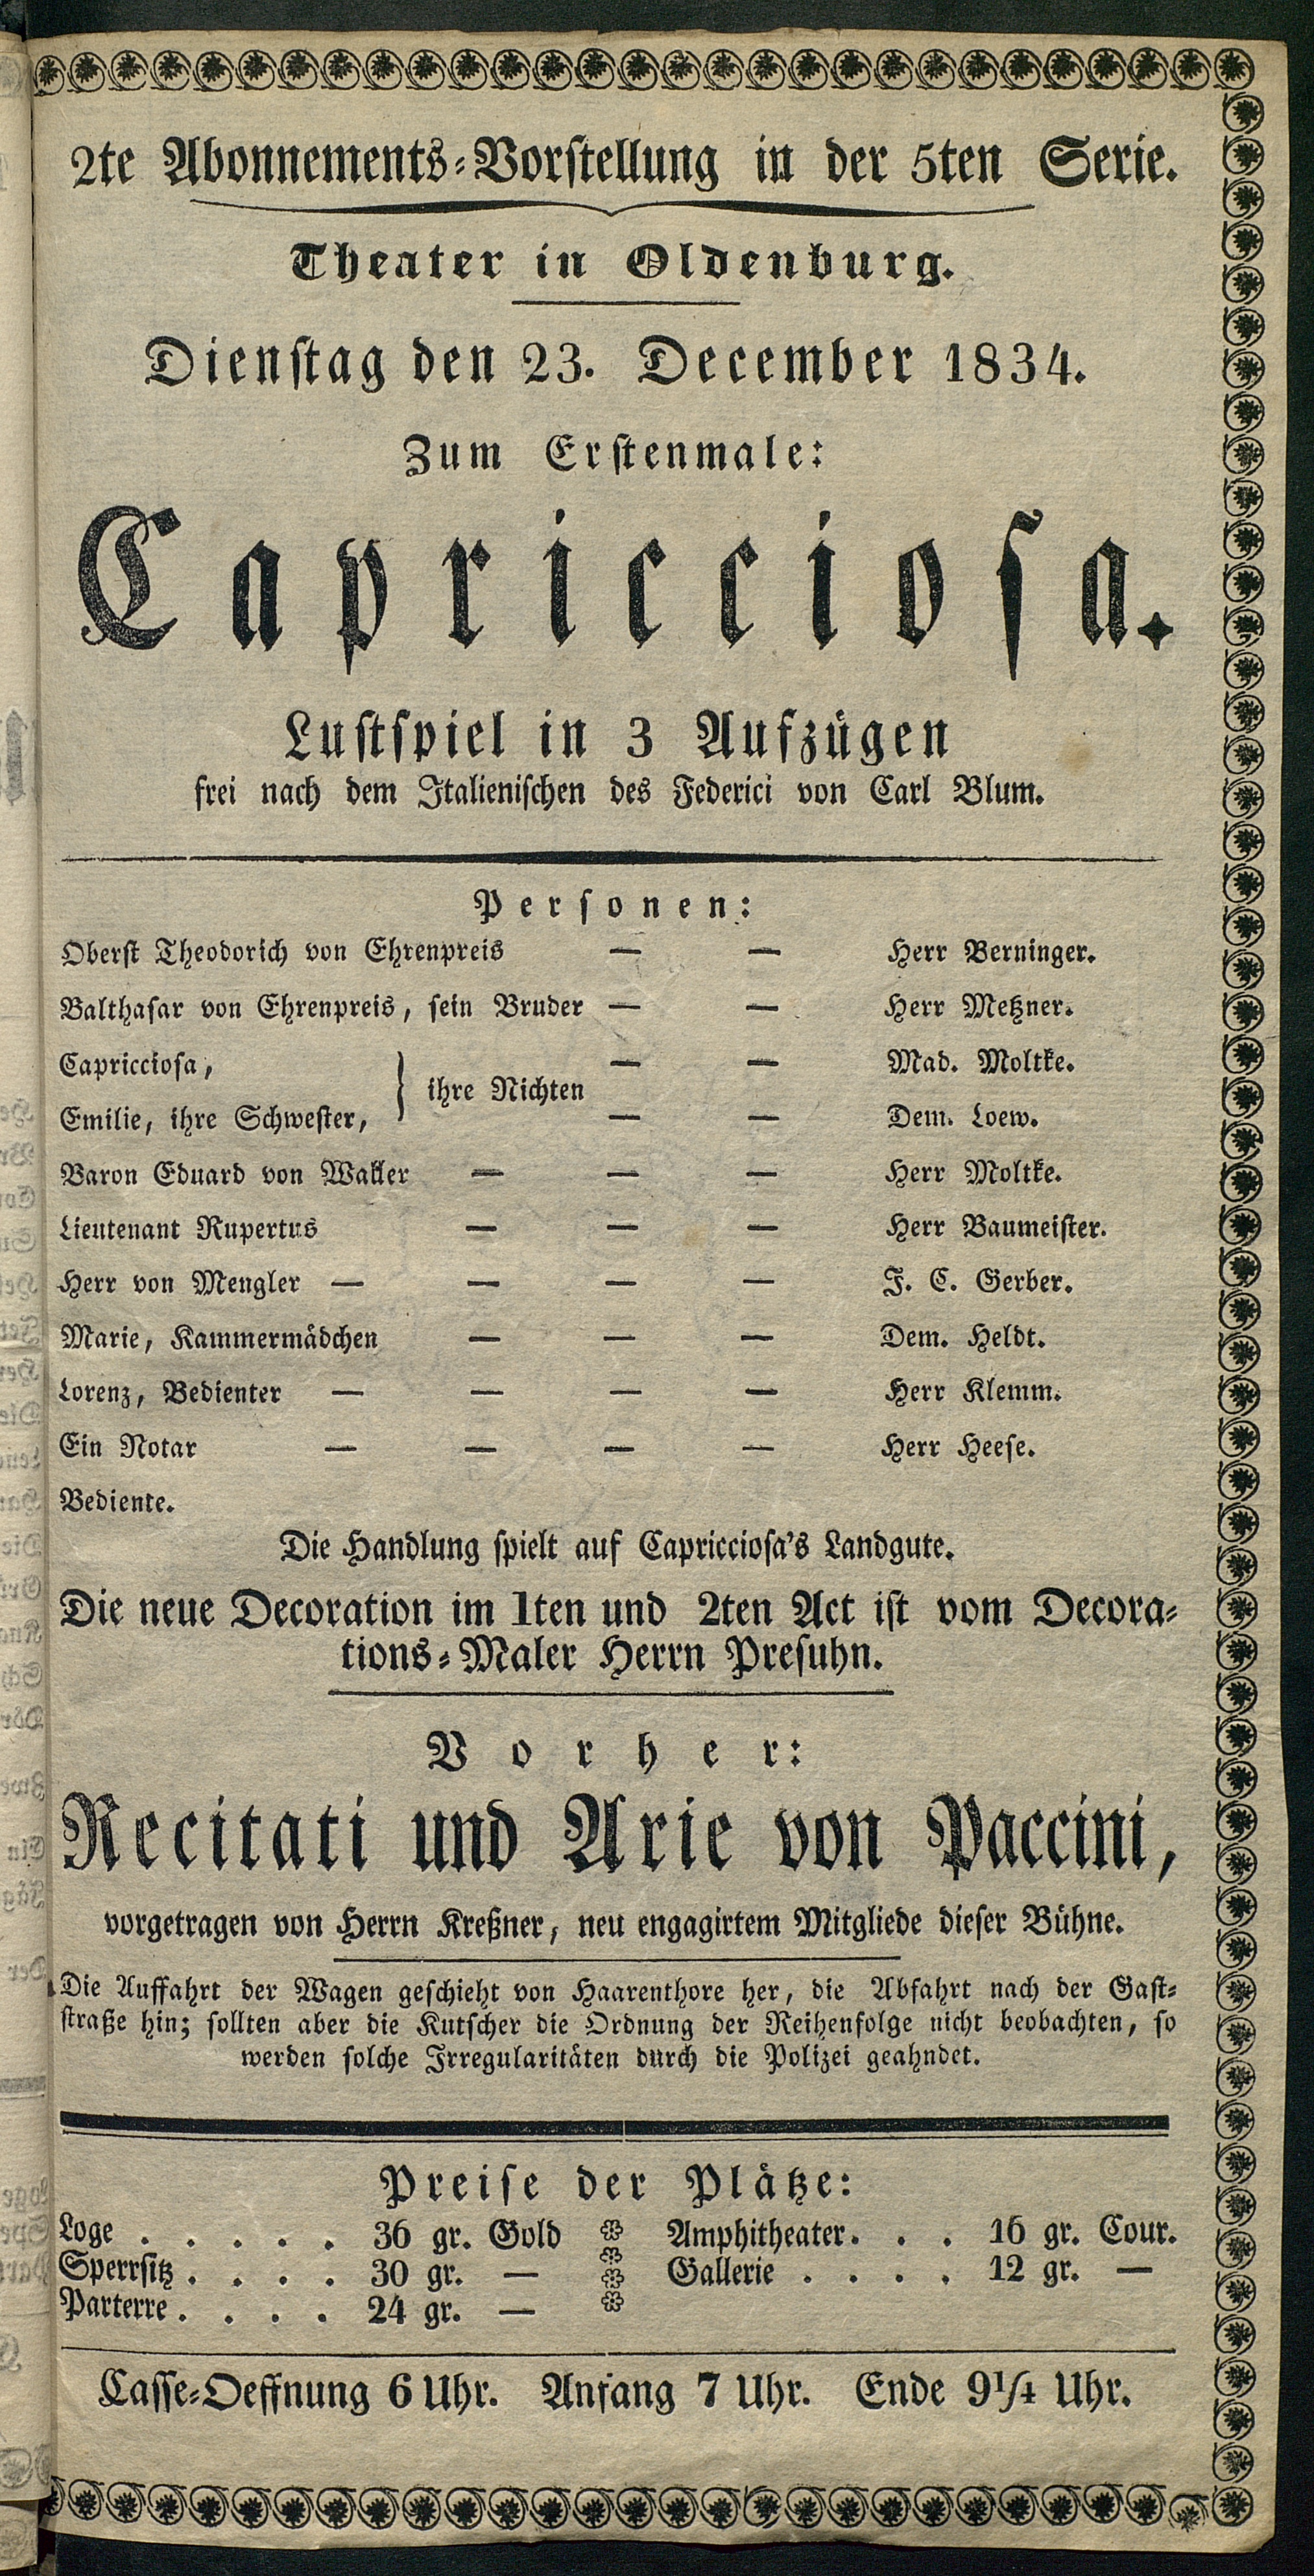 2te Abonnements-Vorstellung in der 5ten Serie.
Theater in Oldenburg.
Dienstag den 23. December 1834.
Zum Erstenmale:
Capricciosa.
Lustspiel in 3 Aufzügen
frei nach dem Italienischen des Federici von Carl Blum.
Personen:
Oberst Theodorich von Ehrenpreis — — Herr Berninger.
Balthasar von Ehrenpreis, sein Bruder — — Herr Metzner.
Capricciosa, } ihre Nichten — — Mad. Moltke.
Emilie, ihre Schwester, — — Dem. Loew.
Baron Eduard von Waller — — — Herr Moltke.
Lieutenant Rupertus — — — Herr Baumeister.
Herr von Mengler — — — — J. C. Gerber.
Marie, Kammermädchen — — — Dem. Heldt.
Lorenz, Bedienter — — — — Herr Klemm.
Ein Notar — — — — Herr Heese.
Bediente.
Die Handlung spielt auf Capricciosa's Landgute.
Die neue Decoration im 1ten und 2ten Act ist vom Decora-
tions-Maler Herrn Presuhn.
Vorher:
Recitati und Arie von Paccini,
vorgetragen von Herrn Kreßner, neu engagirtem Mitgliede dieser Bühne.
Die Auffahrt der Wagen geschieht von Haarenthore her, die Abfahrt nach der Gast-
straße hin; sollten aber die Kutscher die Ordnung der Reihenfolge nicht beobachten, so
werden solche Irregularitäten durch die Polizei geahndet.
Preise der Plätze:
Loge . . . . . 36 gr. Gold Amphitheater. . . 16 gr. Cour.
Sperrsitz . . . . 30 gr. — Gallerie . . . . 12 gr. —
Parterre . . . . 24 gr. —
Casse-Oeffnung 6 Uhr. Anfang 7 Uhr. Ende 9¼ Uhr.